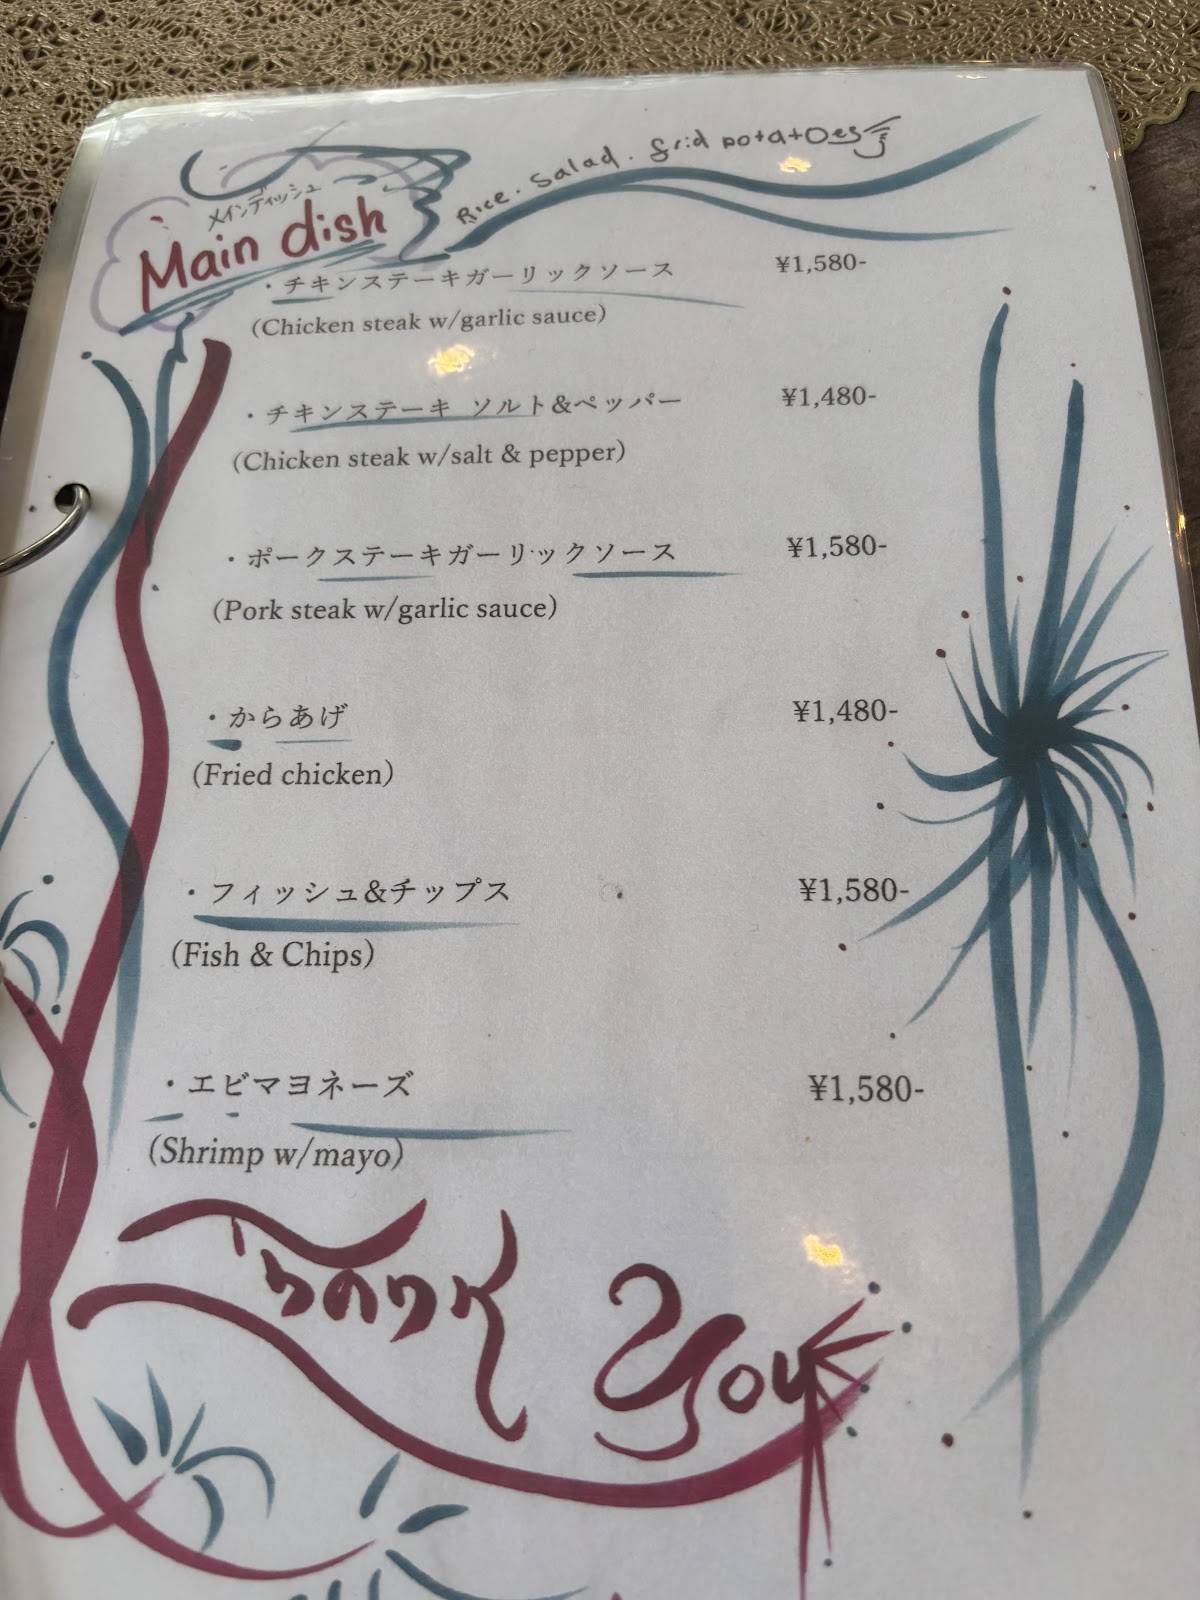 Rice. Salad. frid potatoes
メインディッシュ
Main dish
・チキンステーキガーリックソース ¥1,580-
(Chicken steak w/garlic sauce)
・チキンステーキ ソルト&ペッパー ¥1,480-
(Chicken steak w/salt & pepper)
・ポークステーキガーリックソース ¥1,580-
(Pork steak w/garlic sauce)
・からあげ ¥1,480-
(Fried chicken)
・フィッシュ&チップス ¥1,580-
(Fish & Chips)
・エビマヨネーズ ¥1,580-
(Shrimp w/mayo)
Thank you